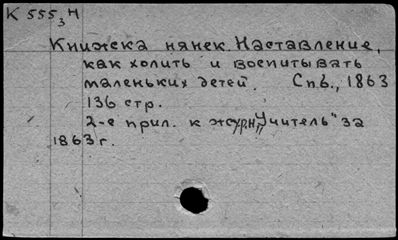 К 555₃ Н
Книжска нянек. Наставление,
как холить и воспитывать
маленьких детей. Спб., 1863
136 стр.
2-е прил. к журн. „Учитель" за
1863 г.